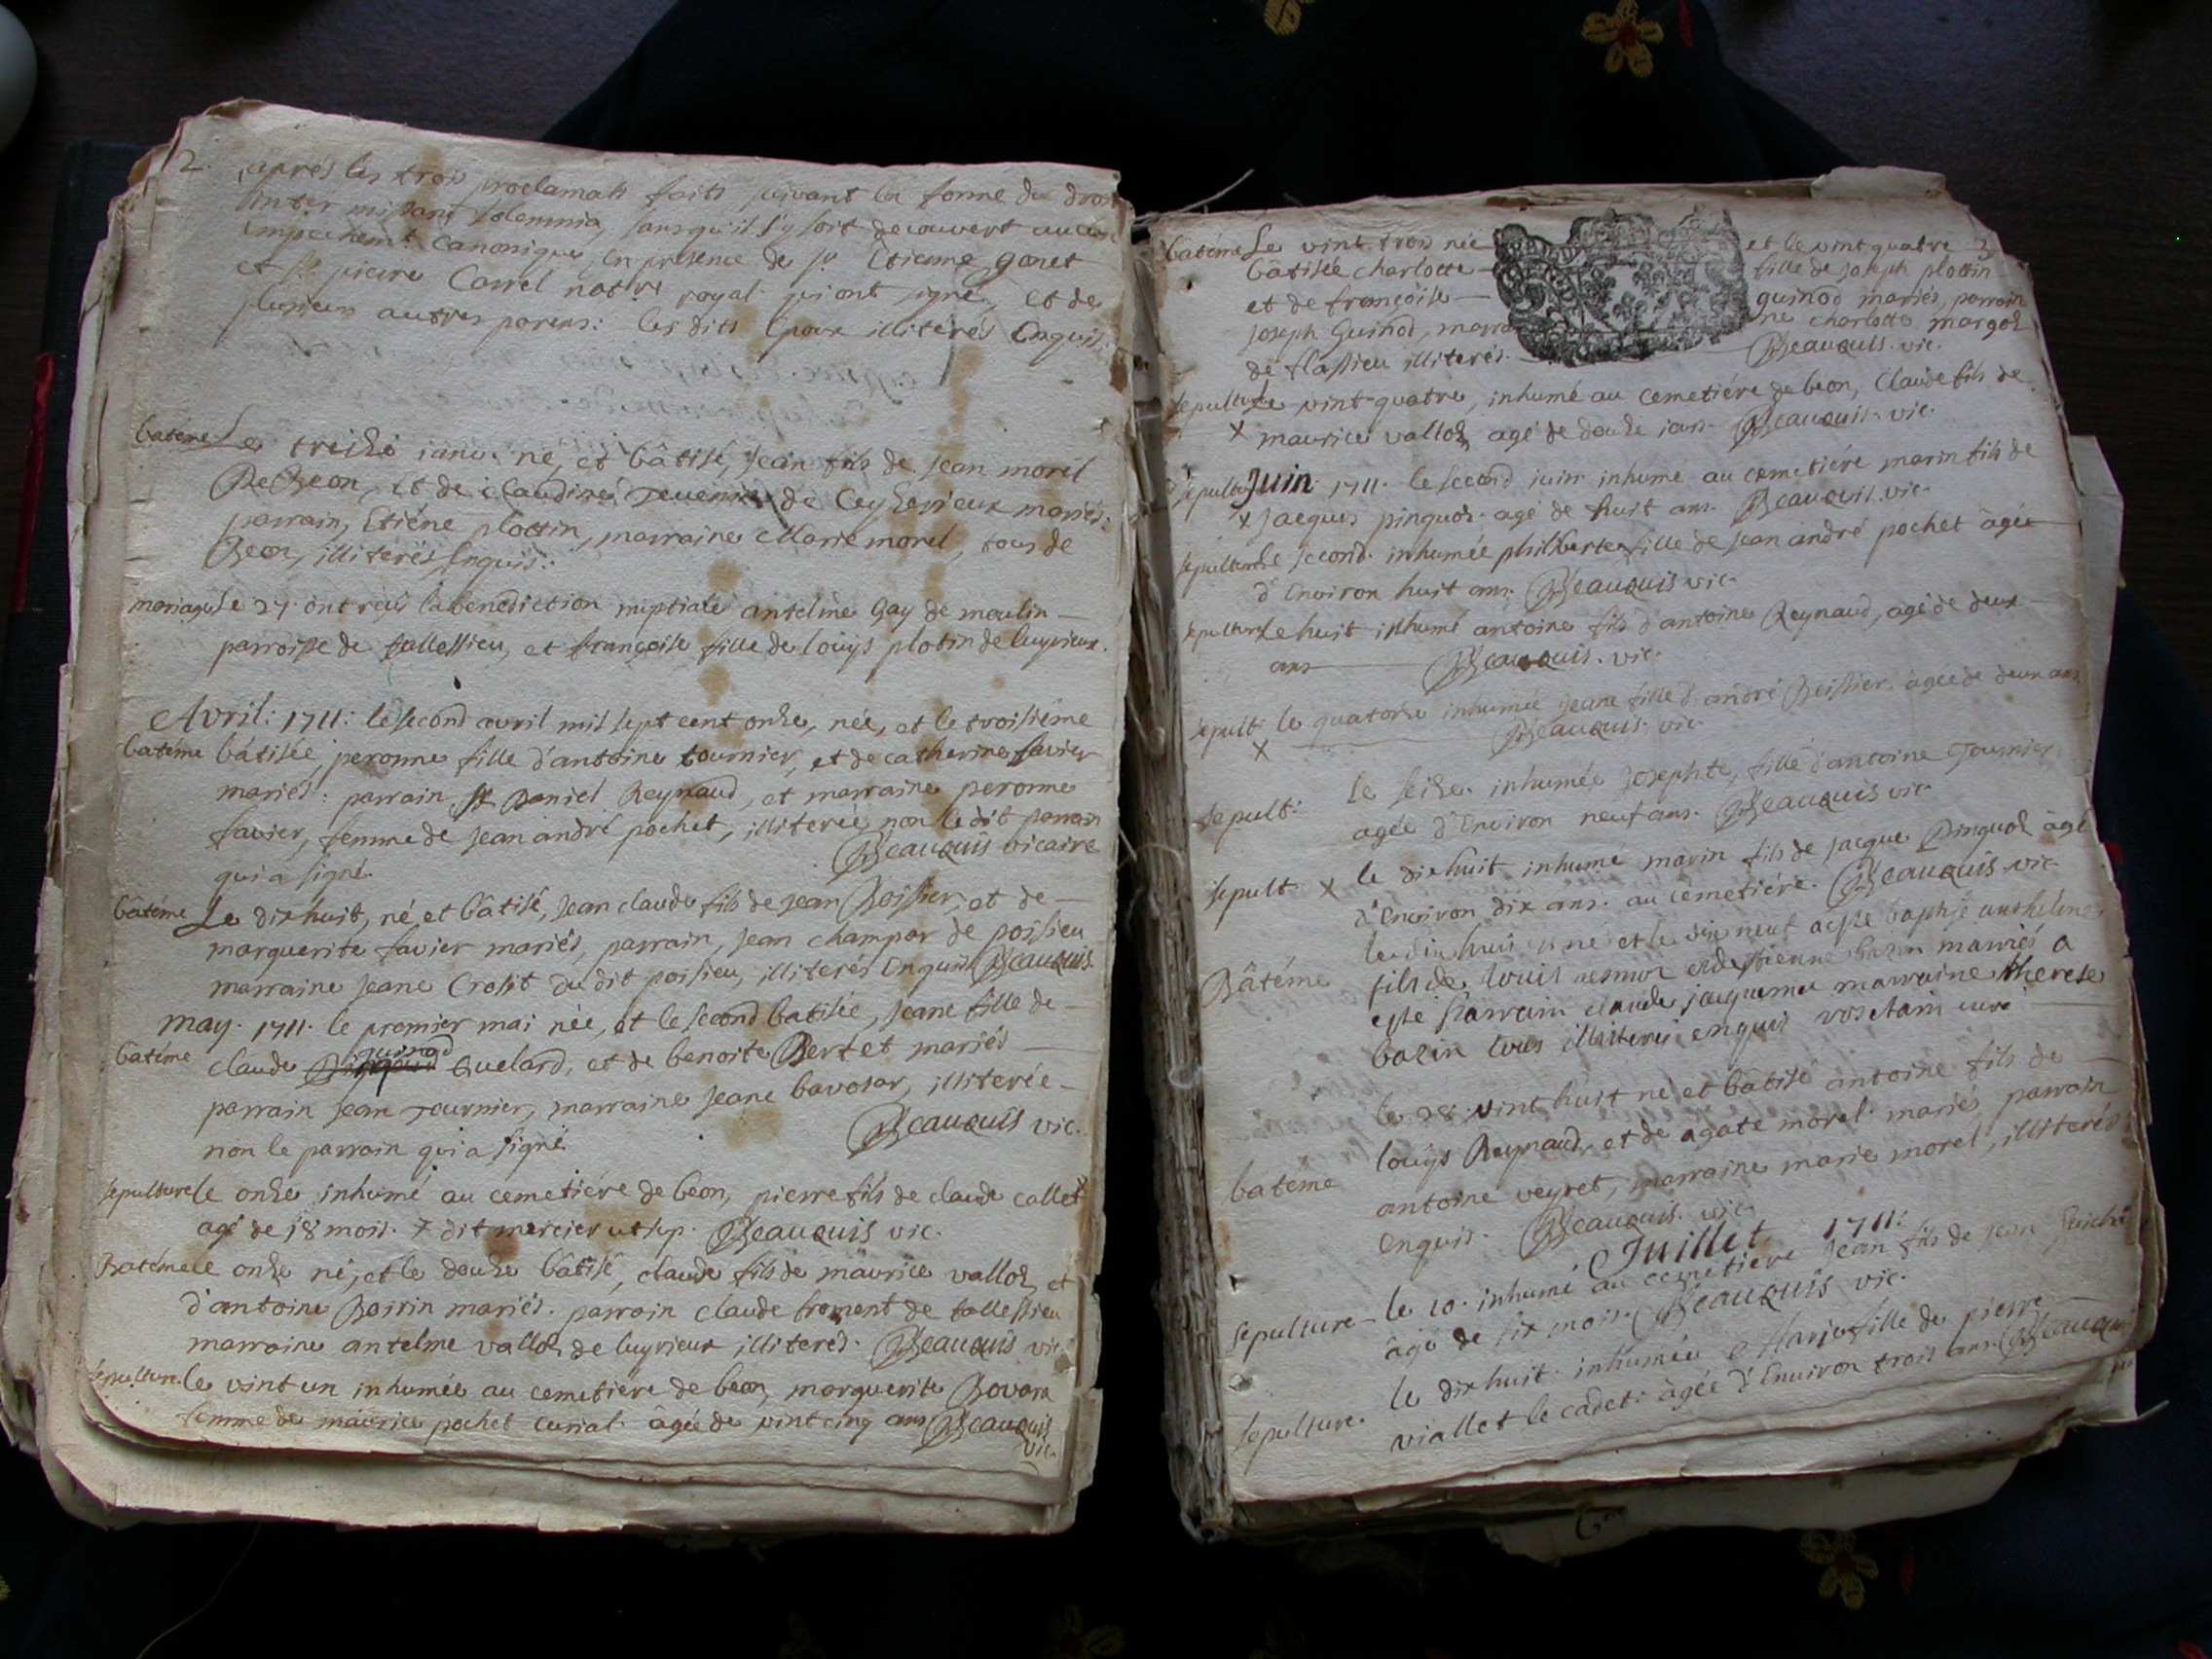 2.
aprés les trois proclamats faits suivant la forme du droit
inter missarum solemnia, sans qu'il s'y soit decouvert aucun
empechemt canonique, en presence de sr Etienne gonet
et sr pierre Carrel notre royal qui ont signé, et de
plusieurs autres parens: les dits Epoux illiterés Enquis.
batéme Le treize janv. né, et bâtisé, jean fils de jean morel
De Beon, et de claudine Tevenin de Ceyzerieux mariés:
parrain, Etiéne plottin, marraine Marie morel, tous de
Beon, illiterés Enquis.
mariage Le 27. ont reçû la benediction nuptiale antelme Gay de moulin
parroisse de tallessieu, et françoise fille de loüys plotin de luyrieux.
Avril: 1711: le second avril mil sept cent onze, née, et le troisiéme
batéme bâtisée, peronne fille d'antoine tournier, et de catherine favier
mariés: parrain, sr Daniel Reynaud, et marraine peronne
favier, femme de jean andré pochet, illiterée, non le dit parrain
qui a signé. Beauquis vicaire
bâtéme Le dixhuit, né et bâtisé, jean claude fils de jean Boissier, et de
marguerite favier mariés, parrain, jean champor de poisieu
marraine jeane Crosit du dit poisieu, illiterés Enquis Beauquis.
may. 1711. le premier mai née, et le second batisée, jeane fille de
batéme claude guinod Guelard, et de benoite Bertet mariés
parrain jean Tournier, marraine jeane bavosar, illiterée
non le parrain qui a signé Beauquis vic.
sepulture le onze inhumé au cemetiére de beon, pierre fils de claude callet x
agé de 18 mois. x dit mercier ut sup. Beauquis vic.
Batéme Le onze né, et le douze bâtisé, claude fils de maurice valloz, et
d'antoine Boirin mariés. parrain claude froment de tallessieu
marraine antelme valloz de luyrieux illiterés. Beauquis vic.
sepulture le vint un inhumée au cemetiére de beon, marguerite Bovara
femme de maurice pochet curial. âgée de vint cinq ans Beauquis
vic.
batéme Le vint-trois née et le vint quatre 3
bâtisée charlotte fille de joseph plottin
et de françoise guinod mariés, parrain
joseph Guinod, marraine charlotte margoz
de flassieu illiterés. Beauquis. vic.
sepulture Le vint-quatre, inhumé au cemetiére de beon, Claude fils de
x maurice valloz agé de douze jours. Beauquis. vic.
sepultu. Juin 1711. le second juin inhumé au cemetiére marin fils de
x jacques pinguoz. agé de huit ans. Beauquis. vic.
sepulture le second. inhumée philiberte fille de jean andré pochet âgée
d'Environ huit ans. Beauquis vic.
sepulture Le huit inhumé antoine fils d'antoine Reynaud, agé de deux
ans Beauquis. vic.
sepult. le quatorze inhumée jeane fille d'andré Boissier. agée de deux ans
x Beauquis. vic.
sepult: le seize. inhumée josephte, fille d'antoine Tournier
agée d'Environ neuf ans. Beauquis vic.
sepult. x le dixhuit inhumé marin fils de jacque Pinguoz âgé
d'Environ dix ans. au cemetiére. Beauquis vic.
le dix huit né et le dix neuf a esté baptisé anthelme
Bâtéme fils de louis et d'estienne bazin mariés a
esté parrain claude jaquemet marraine therese
bazin tous illiterés enquis curé
le 28. vint huit né et batisé antoine fils de
batéme loüys Reynaud, et de agate morel. mariés parrain
antoine veyret, marraine marie morel, illiterés
Enquis. Beauquis. vic.
Juillet 1711:
sepulture le 10. inhumé au cemetiére jean fils de jean
âgé de six mois. Beauquis vic.
sepulture. le dixhuit. inhumée Marie fille de pierre
viallet le cadet. âgée d'Environ trois ans. Beauquis